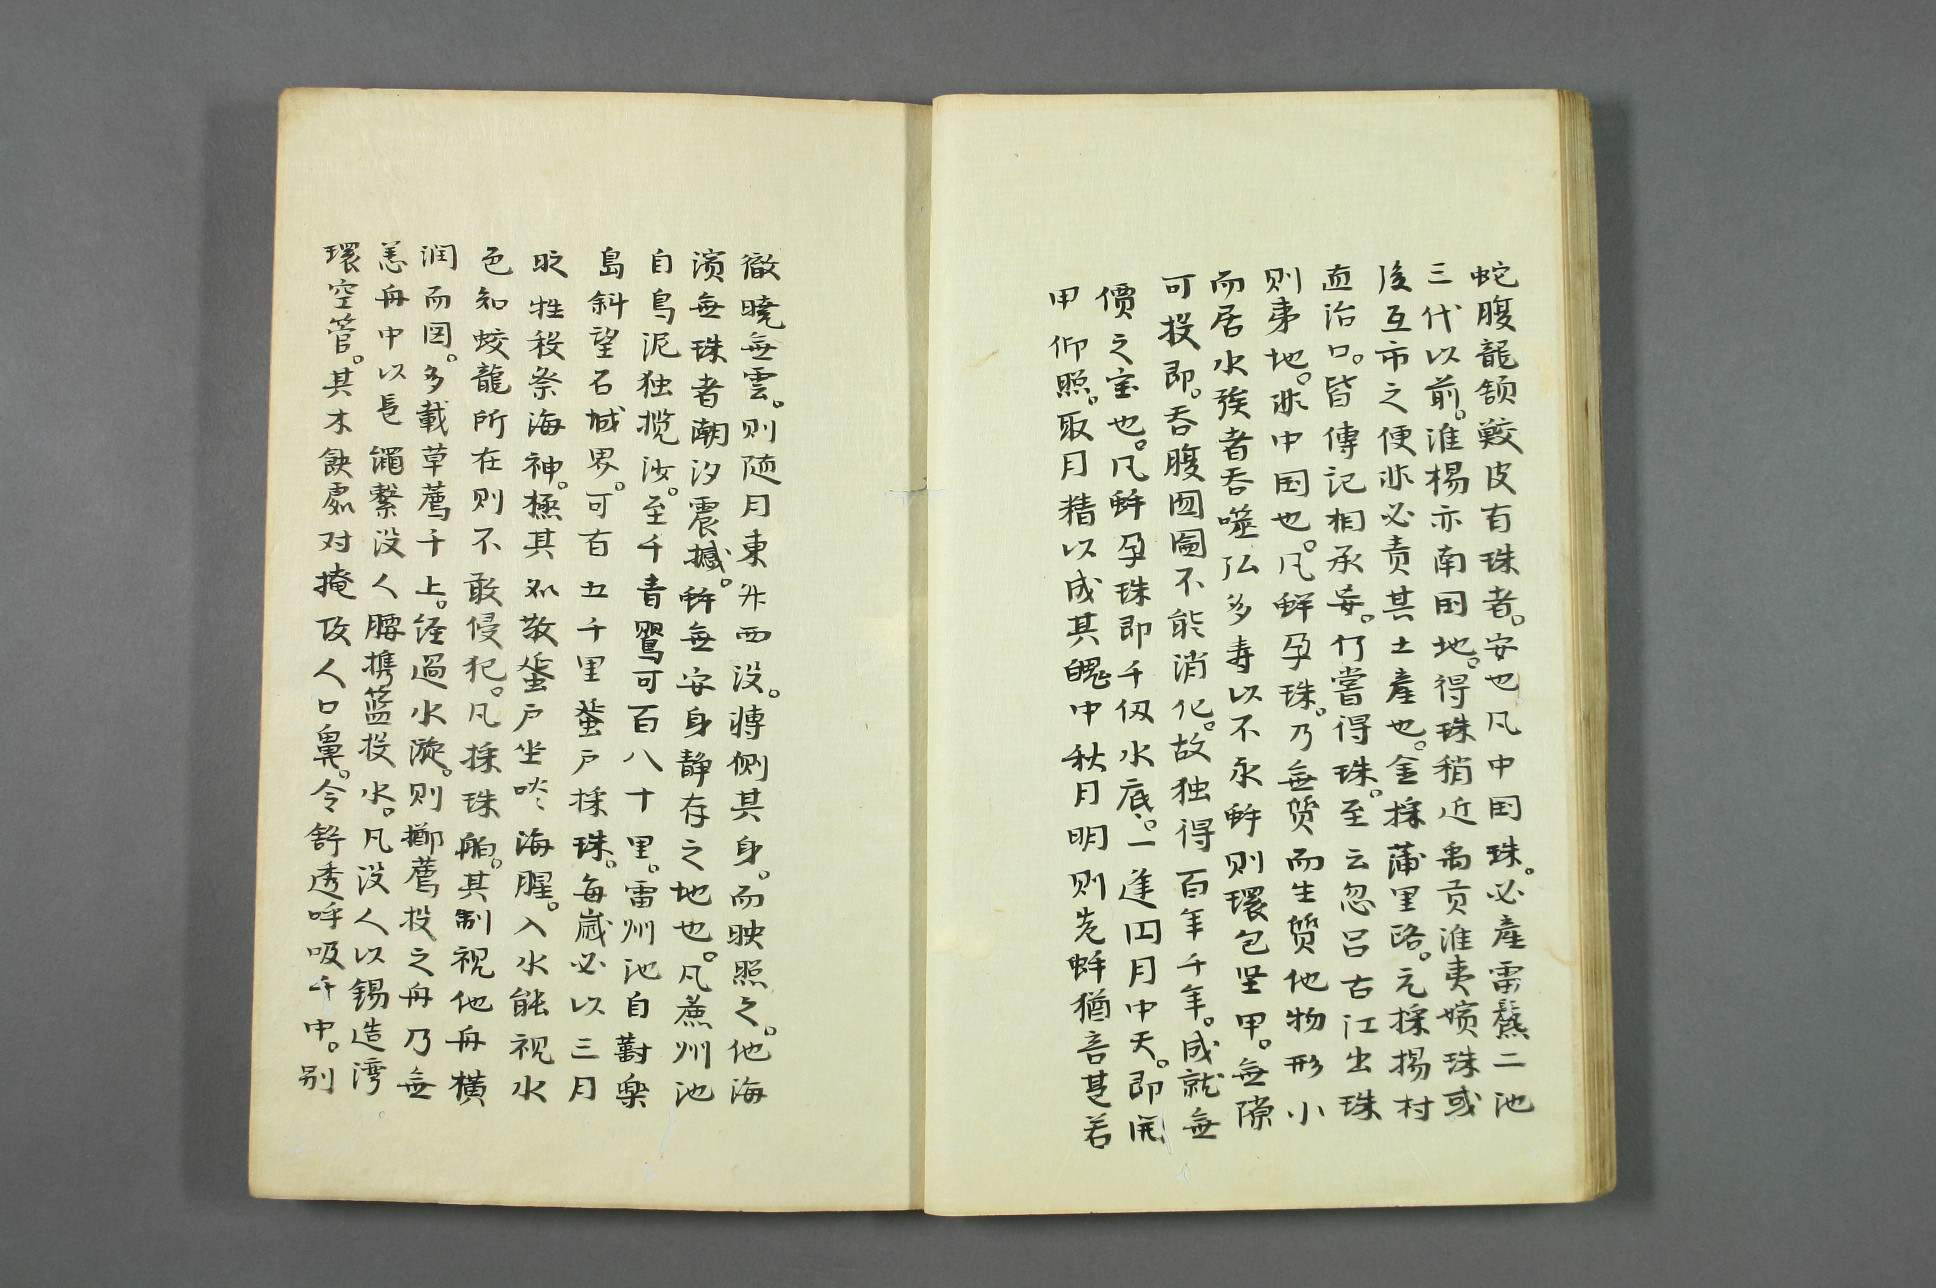 蛇腹龍頷鮫皮有珠者。安也凡中国珠。必產雷
二池
三代以前。淮楊亦南国地。得珠稍近禹貢淮夷嬪珠或
後互市之便非必责其土產也。金採蒲里路。元採楊村
直沽口。皆傳記相承妄。何嘗得珠。至云忽吕古江出珠
则夷地。非中国也。凡蚌孕珠。乃無质而生质他物形小
而居水族者吞噬弘多寿以不永蚌则環包坚甲。無隙
可投即。吞腹囫圇不能消化。故独得百年千年。成就無
價之宝也。凡蚌孕珠即千仭水底。一逢圆月中天。即開
甲仰照。取月精以成其魄中秋月明则老蚌猶喜甚若
徹曉無雲。则随月東升西没。轉侧其身。而映照之。他海
濱無珠者潮汐震撼。蚌無安身静存之地也。凡蔗州池
自烏泥独揽沙。至千青鶯可百八十里。雷州池自對樂
島斜望石城界。可百五千里蜑户採珠。每嵗必以三月
时牲殺祭海神。極其処敬蜑户生啖海腥。入水能视水
色知蛟龍所在则不敢侵犯。凡採珠舶。其制视他舟横
润而圆。多載草薦千上。经過水漩。则擲薦投之舟乃無
恙舟中以長繩繫没人腰携籃投水。凡没人以錫造湾
環空管。其木鈌處对掩攻人口鼻。令舒透呼吸千中。别